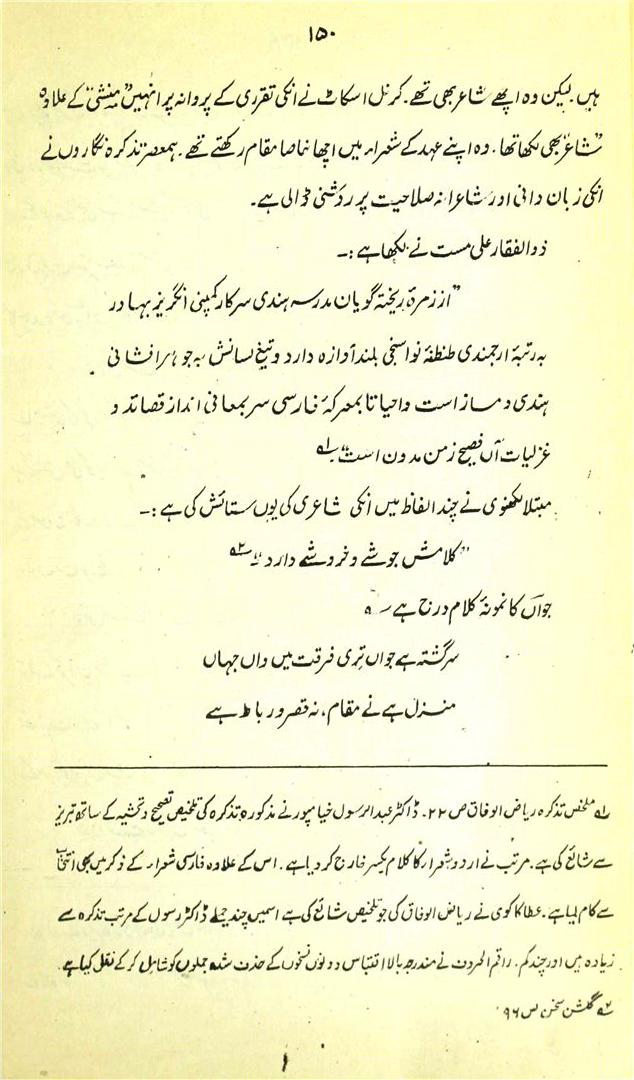 ۱۵۰
ہیں۔ لیکن وہ اچھے شاعر بھی تھے۔ کرنل اسکاٹ نے انکی تقرری کے پروانہ پر انہیں "منشی" کے علاوہ
"شاعر" بھی لکھا تھا۔ وہ اپنے عہد کے شعراء میں اچھا خاصا مقام رکھتے تھے۔ ہمعصر تذکرہ نگاروں نے
انکی زبان دانی اور شاعرانہ صلاحیت پر روشنی ڈالی ہے۔
ذوالفقار علی مست نے لکھا ہے :۔
"از زمرۂ ریختہ گویان مدرسہ ہندی سرکار کمپنی انگریز بہادر
بہ رتبۂ ارجمندی طنطنۂ نواسنجی بلند آوازہ دارد و تیغ لسانش بہ جوہر افشانی
ہندی دمساز است و احیاتا بمعرکۂ فارسی سر بمعانی انداز قصائد و
غزلیات آں فصیح زمن مدون است"۱؎
مبتلا لکھنوی نے چند الفاظ میں انکی شاعری کی یوں ستائش کی ہے :۔
"کلامش جوشے و خروشے دارد"۲؎
جواں کا نمونۂ کلام درج ہے ۔ ۵
سرگشتہ ہے جواں تری فرقت میں واں جہاں
منزل ہے نے مقام، نہ قصر و رباط ہے
۱؎ ملخص تذکرہ ریاض الوفاق ص ۲۲۔ ڈاکٹر عبدالرسول خیامپور نے مذکورہ تذکرہ کی تلخیص تصحیح و تحشیہ کے ساتھ تبریز
سے شائع کی ہے۔ مرتب نے اردو شعراء کا کلام یکسر خارج کر دیا ہے۔ اس کے علاوہ فارسی شعراء کے ذکر میں بھی انتخاب
سے کام لیا ہے۔ عطا کاکوی نے ریاض الوفاق کی جو تلخیص شائع کی ہے اسمیں چند جملے ڈاکٹر رسول کے مرتب تذکرہ سے
زیادہ ہیں اور چند کم۔ راقم الحروف نے مندرجہ بالا اقتباس دونوں نسخوں کے حذف شدہ جملوں کو شامل کر کے نقل کیا ہے۔
۲؎ گلشن سخن ص ۹۶